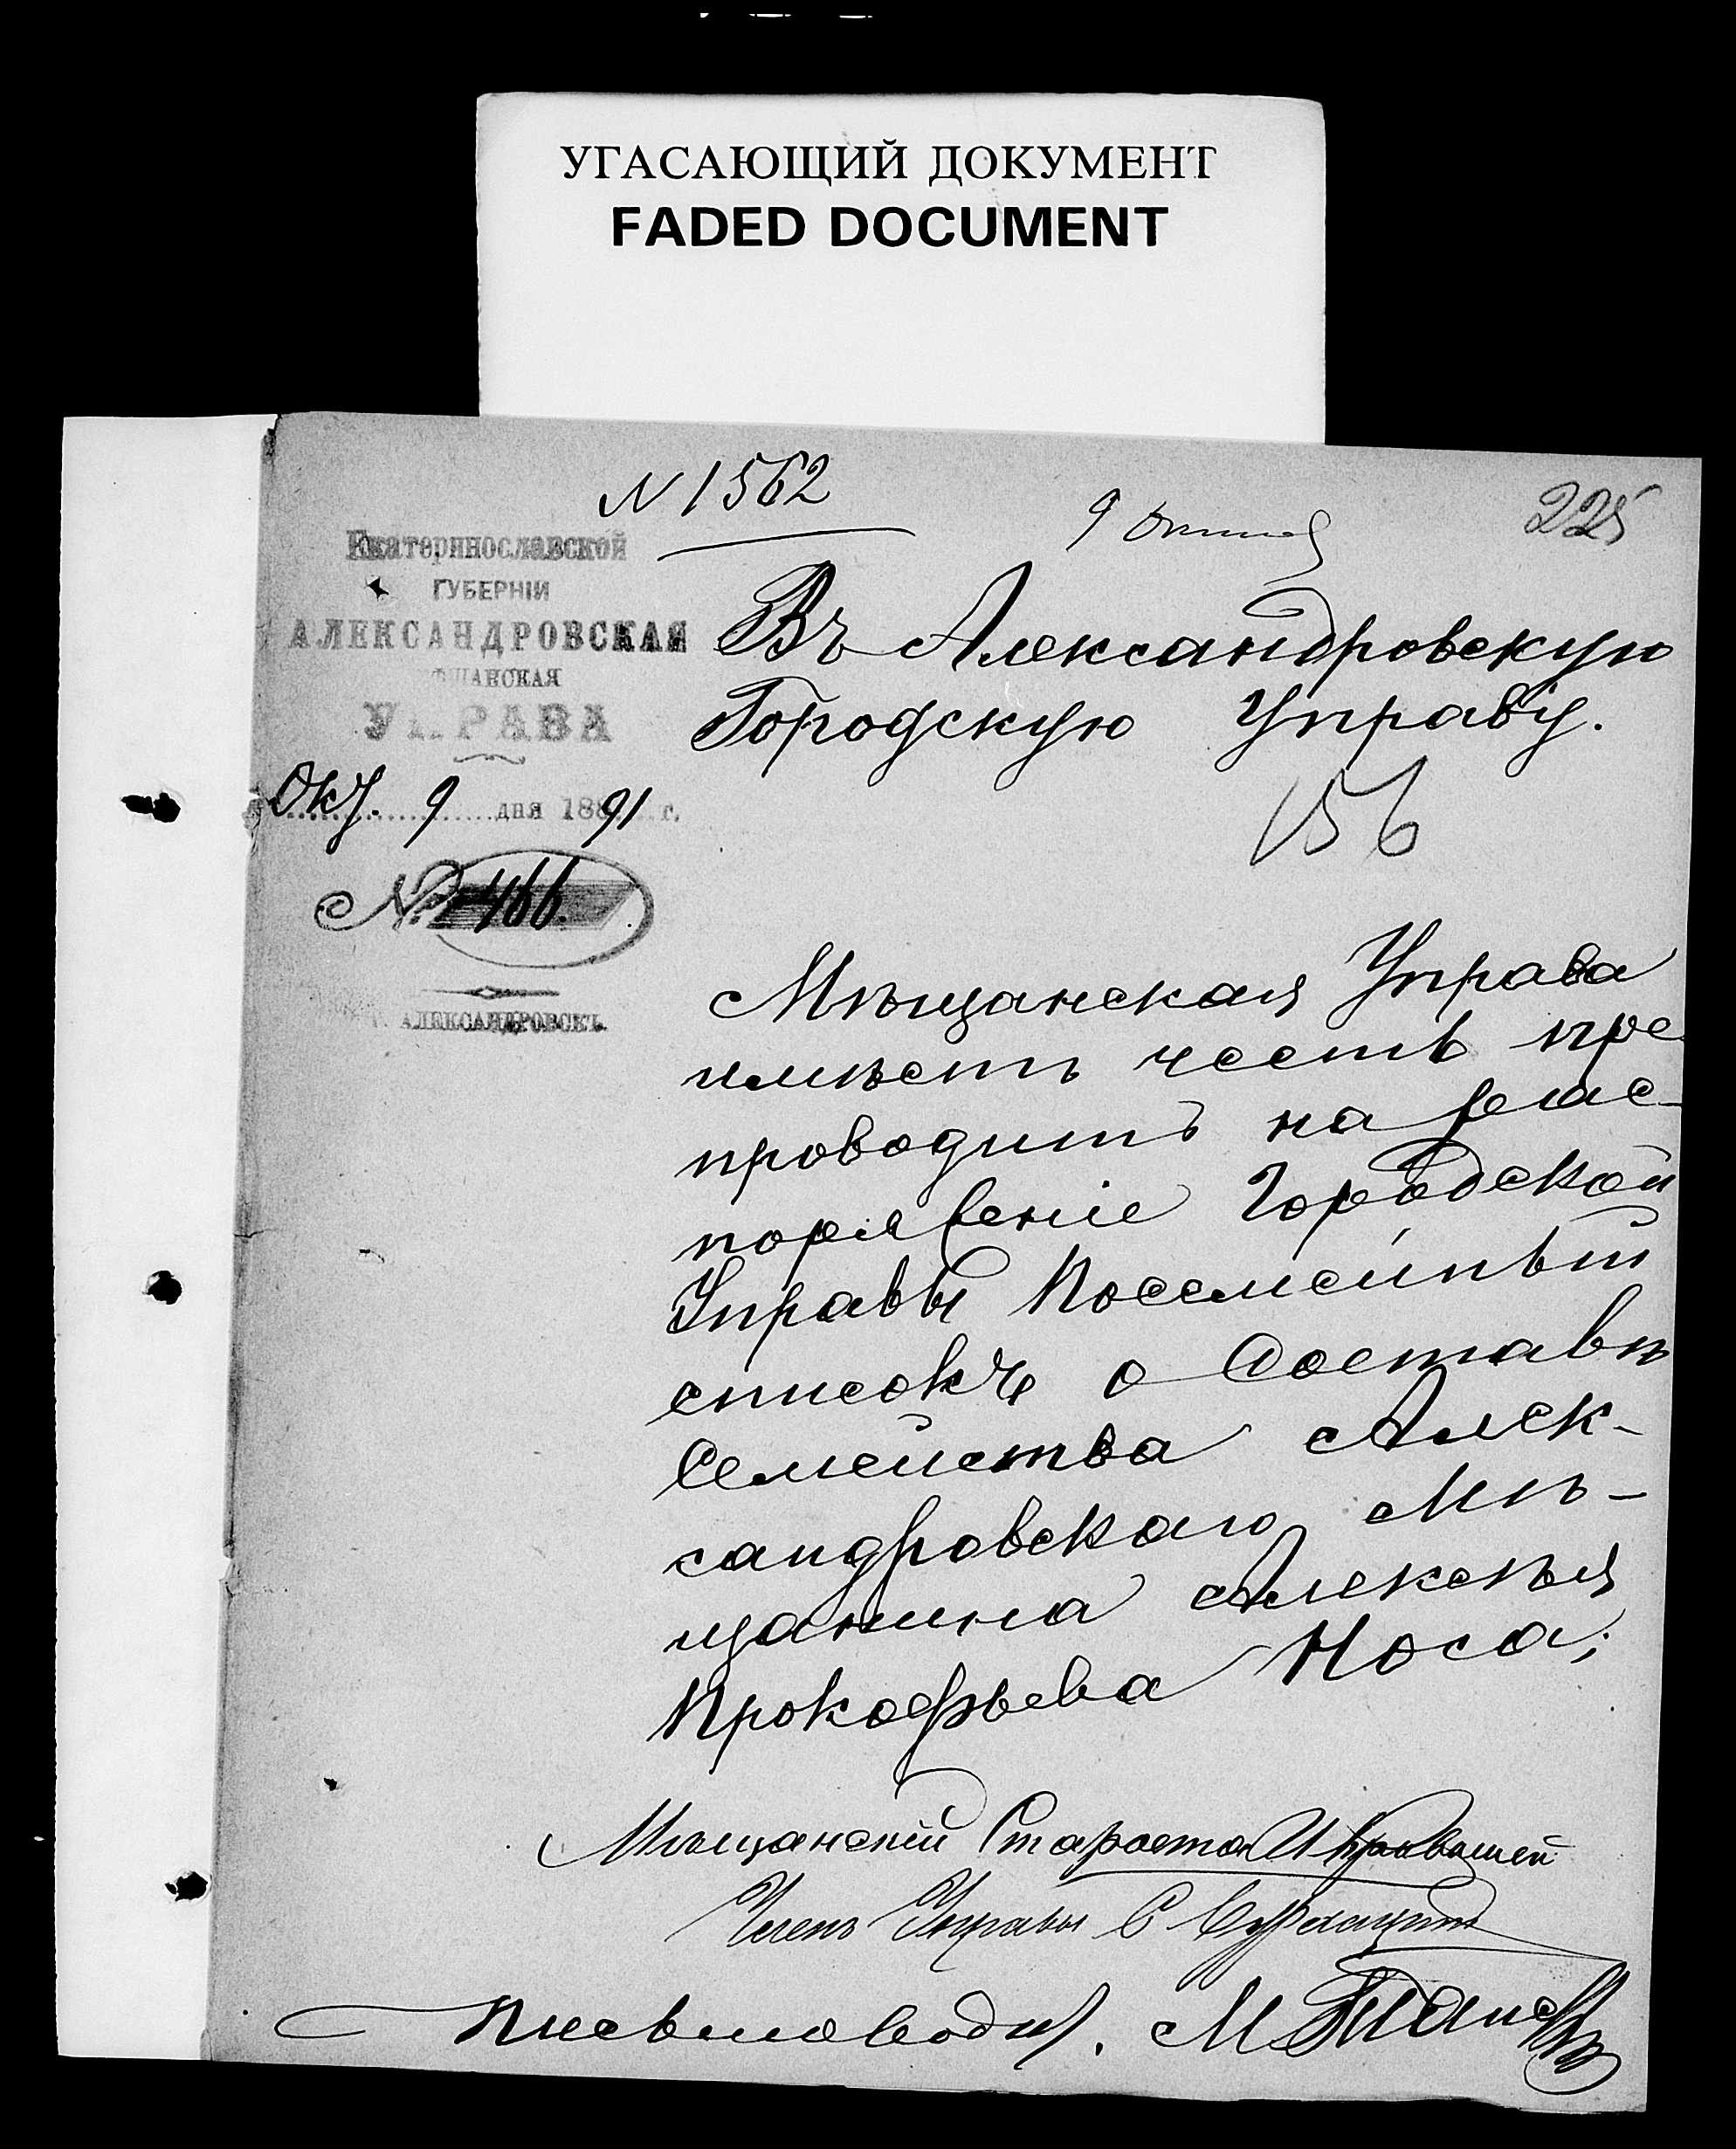 УГАСАЮЩИЙ ДОКУМЕНТ
FADED DOCUMENT
N 1562
225
9
Екатеринославской
ГУБЕРНІИ
АЛЕКСАНДРОВСКАЯ
ЩАНСКАЯ
УПРАВА
Окт. 9 дня 1891 г.
№ 466.
АЛЕКСАНДРОВСКЪ.
Въ Александровскую
Городскую Управу.
156
Мѣщанская Управа
имѣетъ честь пре
проводить на
Городской
Управы Посемейный
списокъ о Составѣ
Семейства Алек-
сандровскаго Мѣ-
щанина Алексѣя
Прокофьева Носа.
Мѣщанскій Староста И
Членъ Управы С
Письмоводит. М